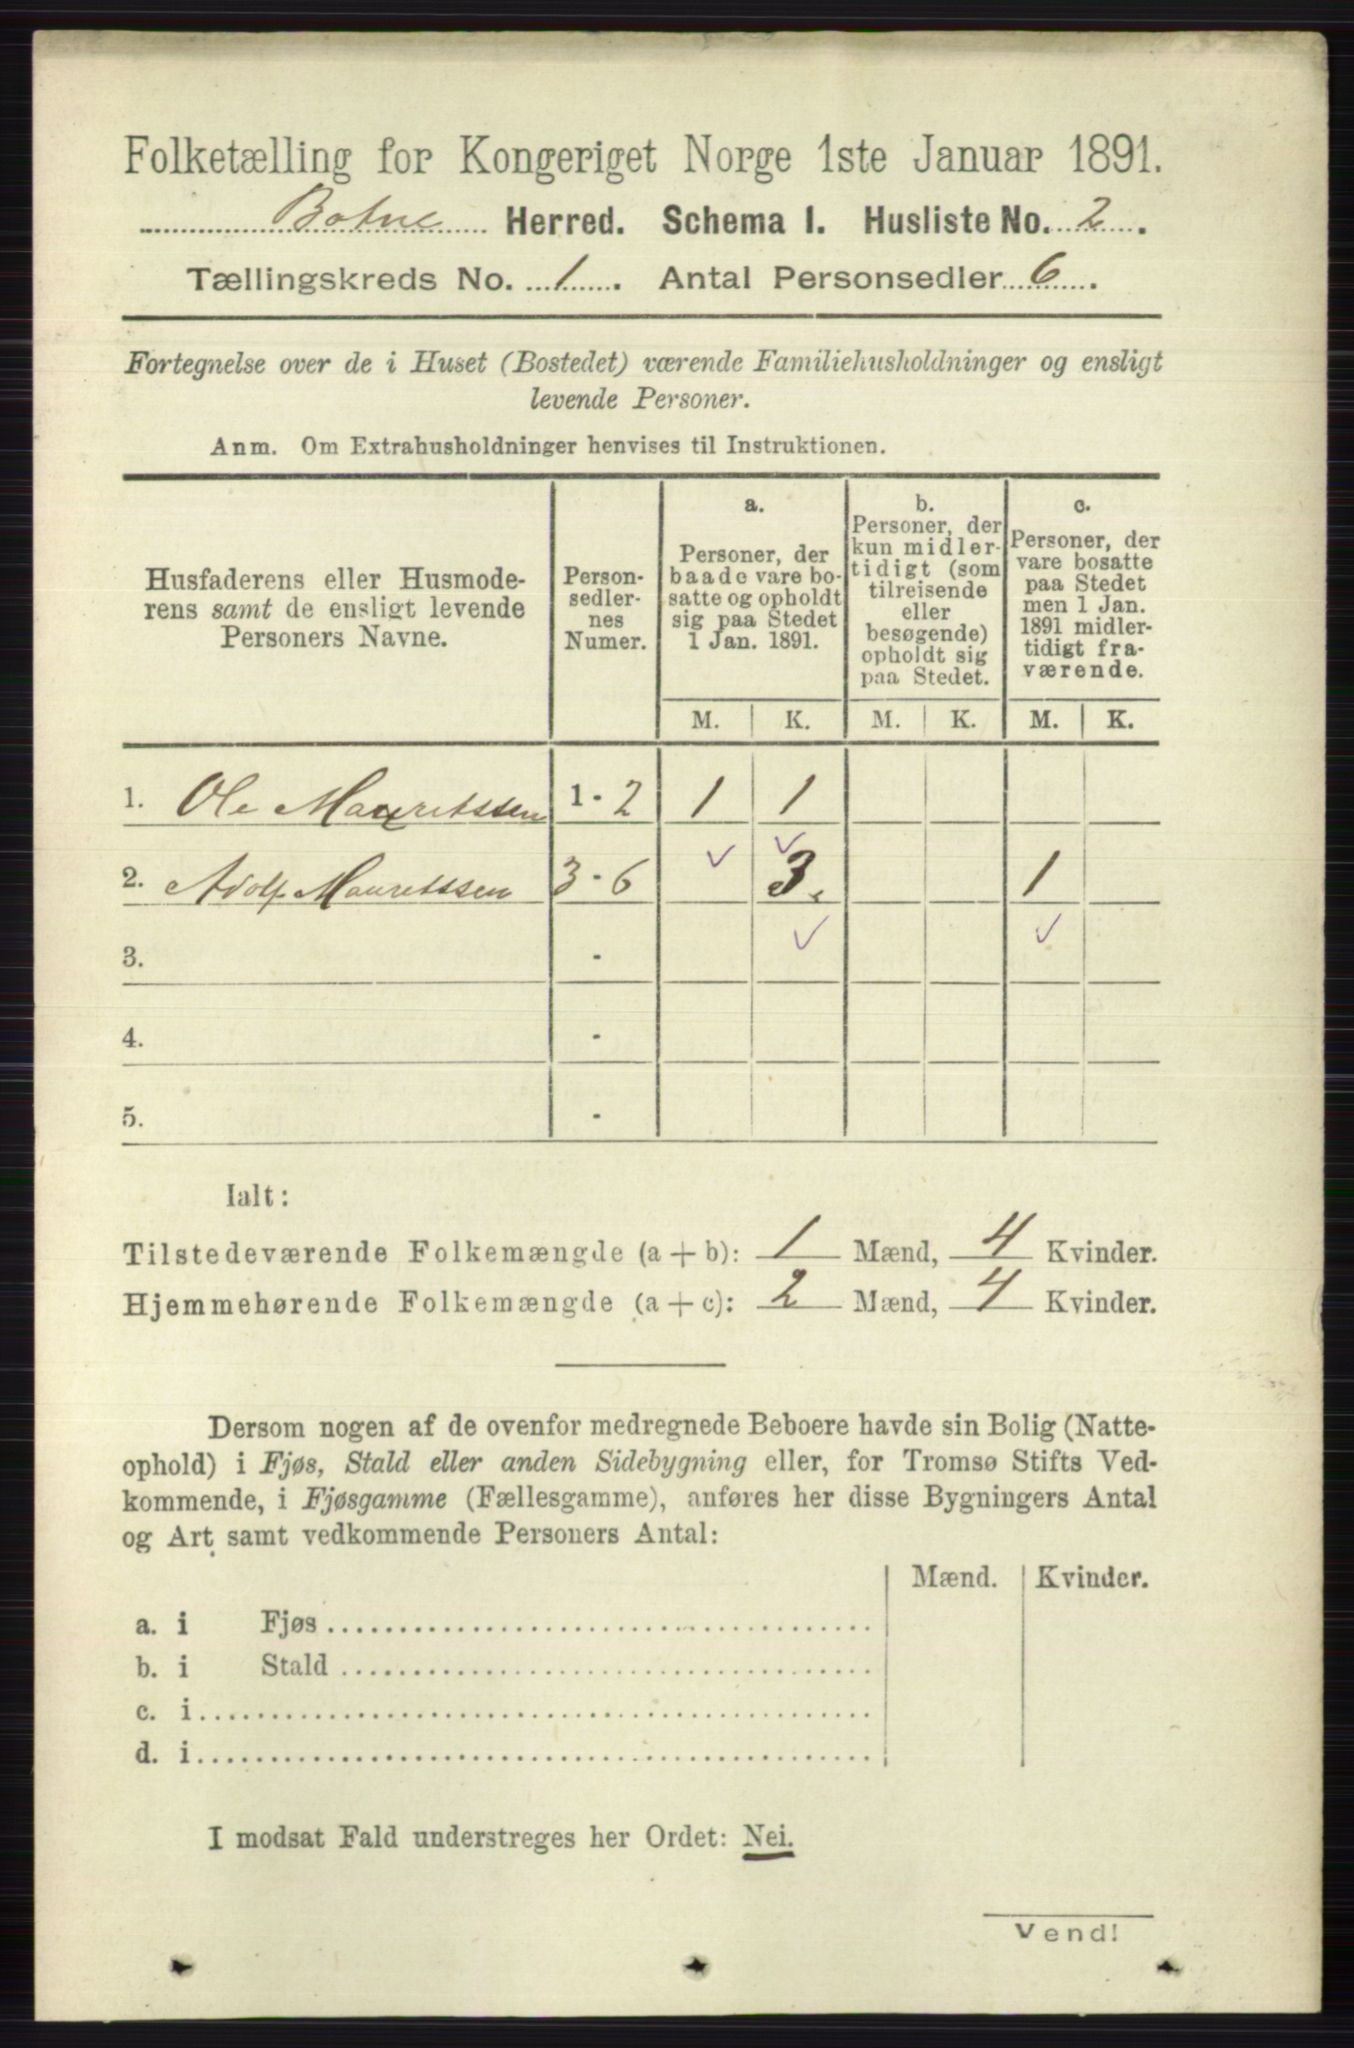 Folketælling for Kongeriget Norge 1ste Januar 1891.
Botne Herred. Schema 1. Husliste No. 2.
Tællingskreds No. 1. Antal Personsedler 6.
Fortegnelse over de i Huset (Bostedet) værende Familiehusholdninger og ensligt
levende Personer.
Anm. Om Extrahusholdninger henvises til Instruktionen.
Husfaderens eller Husmode-
rens samt de ensligt levende
Personers Navne.
Person-
sedler-
nes
Numer.
a.
Personer, der
baade vare bo-
satte og opholdt
sig paa Stedet
1 Jan. 1891.
b.
Personer, der
kun midler-
tidigt (som
tilreisende
eller
besøgende)
opholdt sig
paa Stedet.
c.
Personer, der
vare bosatte
paa Stedet
men 1 Jan.
1891 midler-
tidigt fra-
værende.
M. K. M. K. M. K.
1. Ole Mauritssen 1 - 2 1 1
2. Adolf Mauritssen 3 - 6 3. 1
3. -
4. -
5. -
Ialt:
Tilstedeværende Folkemængde (a + b): 1 Mænd, 4 Kvinder.
Hjemmehørende Folkemængde (a + c): 2 Mænd, 4 Kvinder.
Dersom nogen af de ovenfor medregnede Beboere havde sin Bolig (Natte-
ophold) i Fjøs, Stald eller anden Sidebygning eller, for Tromsø Stifts Ved-
kommende, i Fjøsgamme (Fællesgamme), anføres her disse Bygningers Antal
og Art samt vedkommende Personers Antal:
Mænd. Kvinder.
a. i Fjøs
b. i Stald
c. i
d. i
I modsat Fald understreges her Ordet: Nei.
Vend!